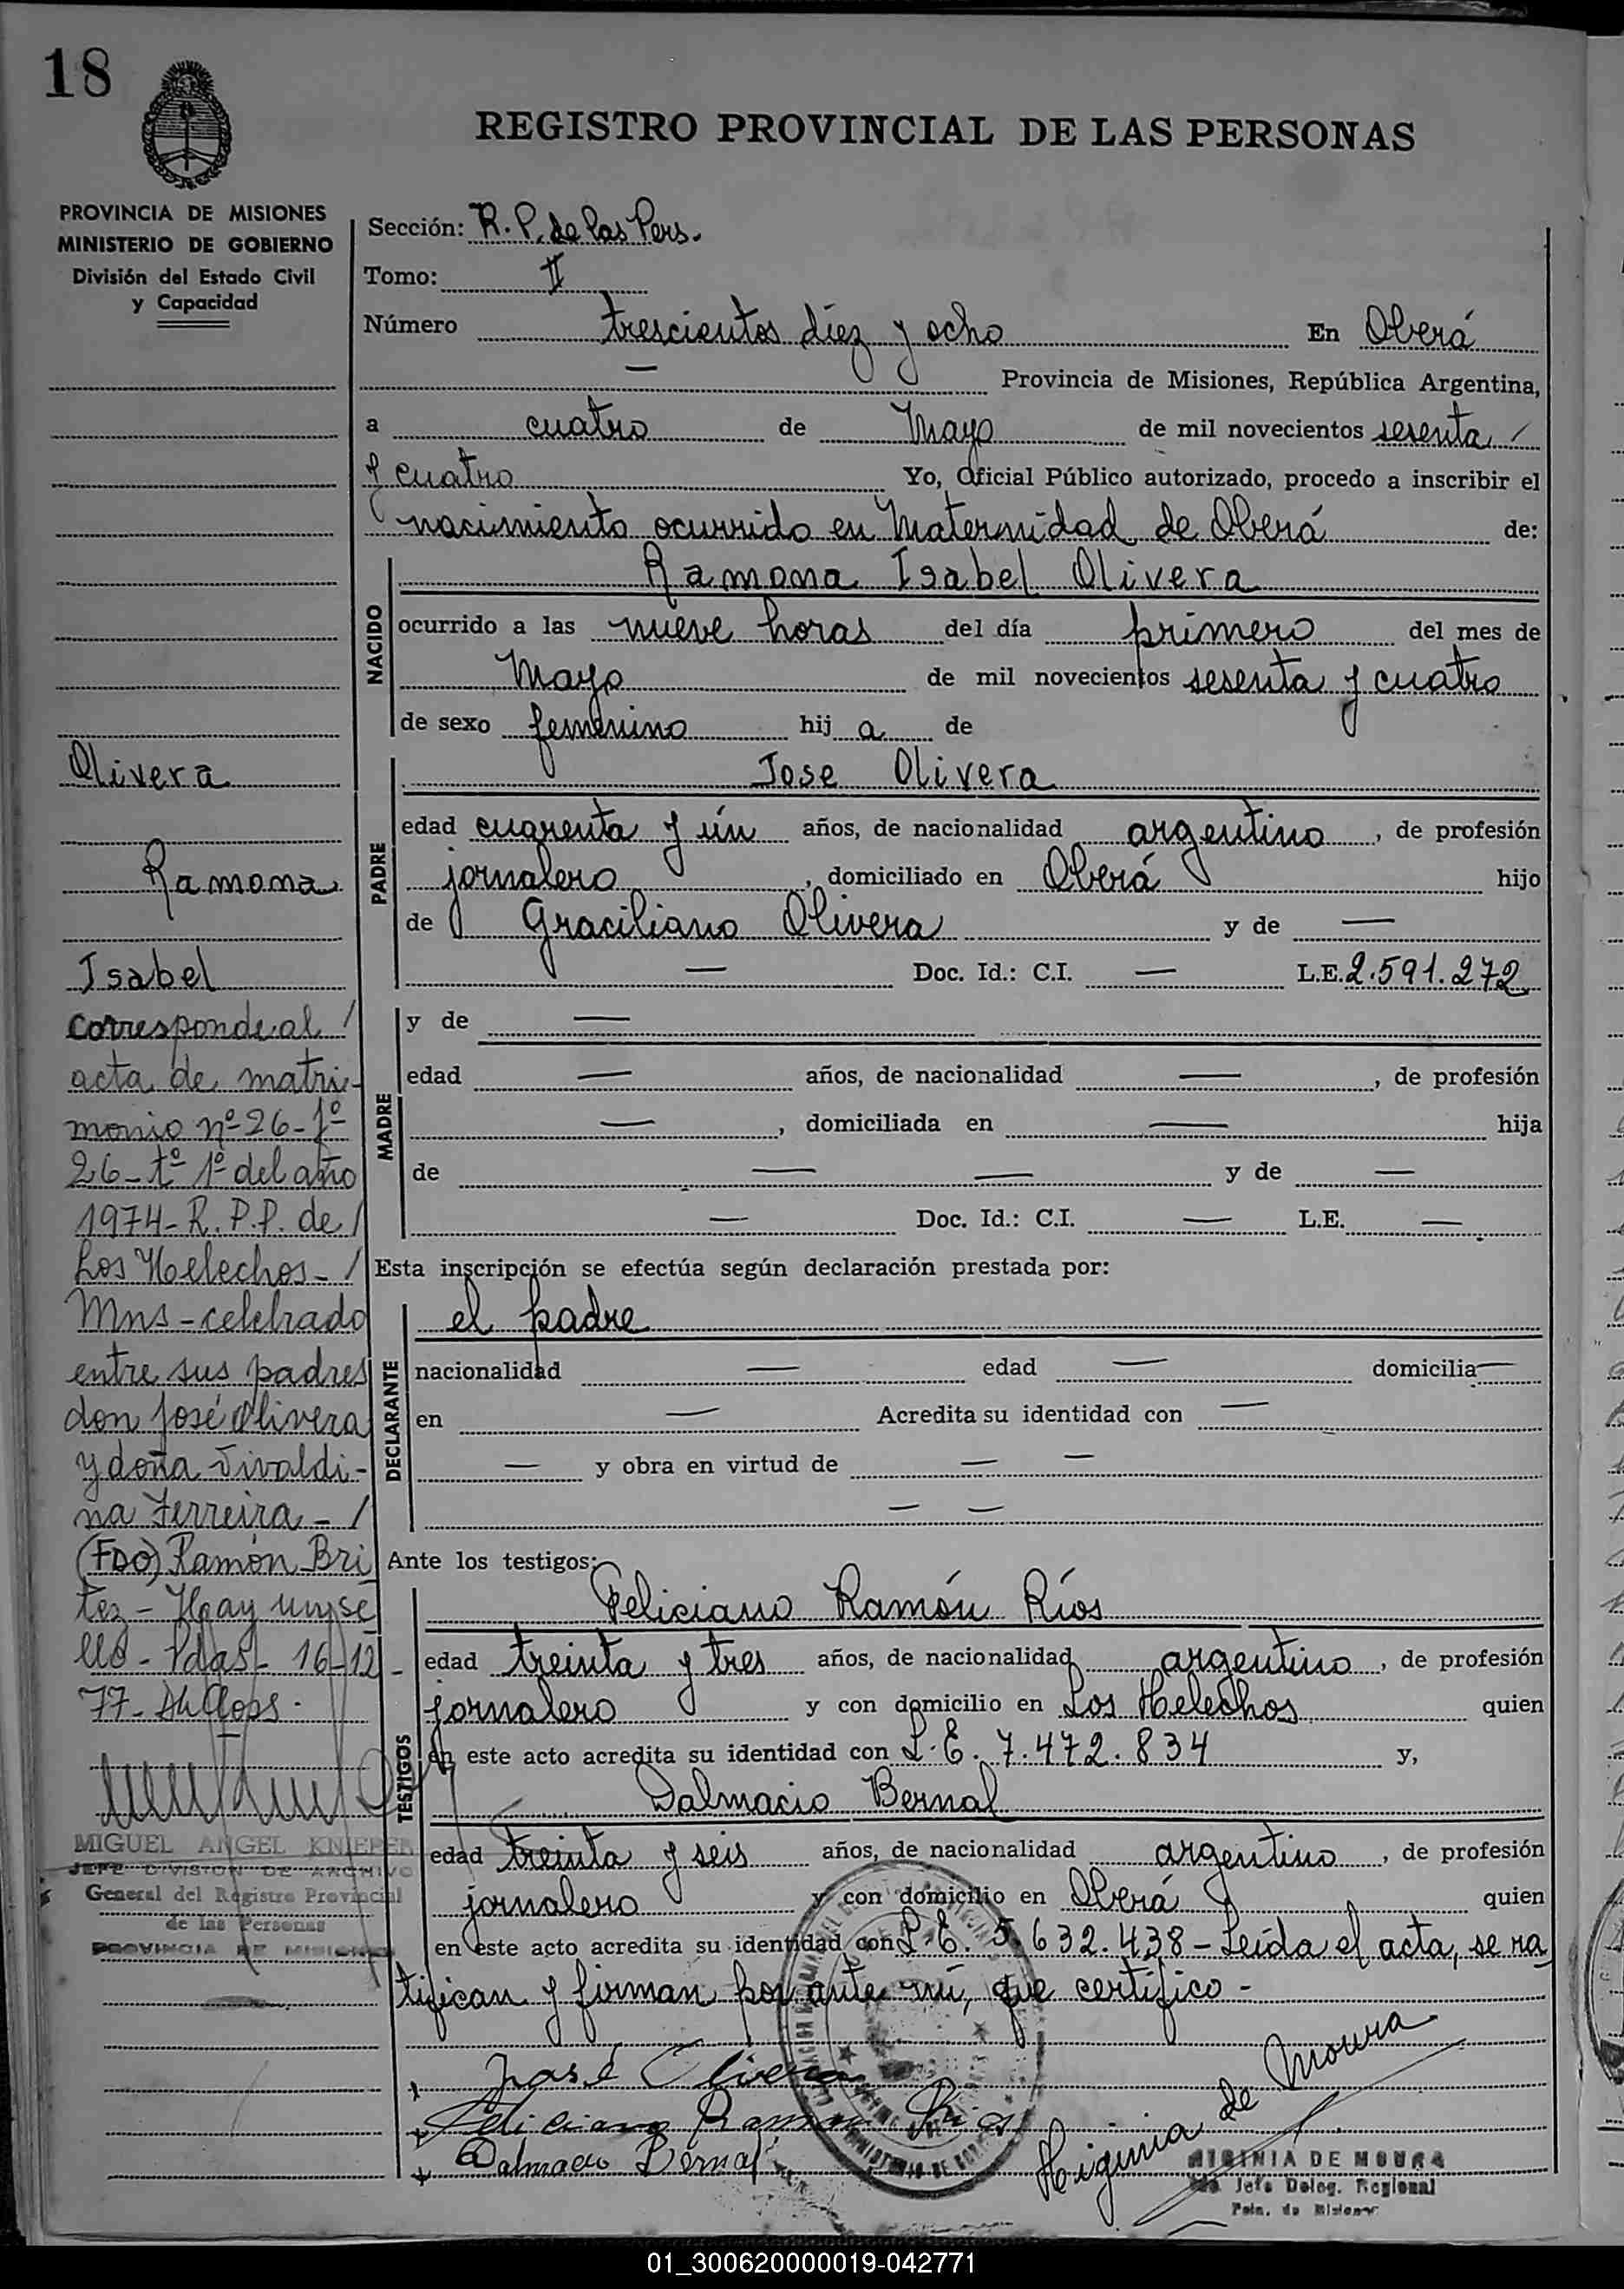 18
REGISTRO PROVINCIAL DE LAS PERSONAS
PROVINCIA DE MISIONES
MINISTERIO DE GOBIERNO
División del Estado Civil
y Capacidad
Sección: R. P. de las Pers.
Tomo: II
Número trescientos díez y ocho En Oberá
— Provincia de Misiones, República Argentina,
a cuatro de Mayo de mil novecientos sesenta /
y cuatro Yo, Oficial Público autorizado, procedo a inscribir el
nacimiento ocurrido en Maternidad de Oberá de:
NACIDO
Ramona Isabel Olivera
ocurrido a las nueve horas del día primero del mes de
Mayo de mil novecientos sesenta y cuatro
de sexo femenino hij a de
PADRE
Jose Olivera
edad cuarenta y ún años, de nacionalidad argentino, de profesión
jornalero, domiciliado en Oberá hijo
de Graciliano Olivera y de —
— Doc. Id.: C.I. — L.E. 2.591.272
MADRE
y de —
edad — años, de nacionalidad —, de profesión
—, domiciliada en — hija
de — — y de —
— Doc. Id.: C.I. — L.E. —
Esta inscripción se efectúa según declaración prestada por:
DECLARANTE
el padre
nacionalidad — edad — domicilia—
en — Acredita su identidad con —
— y obra en virtud de — —
— —
Ante los testigos:
TESTIGOS
Feliciano Ramón Ríos
edad treinta y tres años, de nacionalidad argentino, de profesión
jornalero y con domicilio en Los Helechos quien
en este acto acredita su identidad con L.E. 7.472.834 y,
Dalmacio Bernal
edad treinta y seis años, de nacionalidad argentino, de profesión
jornalero y con domicilio en Oberá quien
en este acto acredita su identidad con L.E. 5.632.438 - Leída el acta, se ra
tifican y firman por ante mí, que certifico -
José Olivera
Feliciano Ramon Rios
Dalmacio Bernal
Higinia de Moura
HIGINIA DE MOURA
Jefe Deleg. Regional
Pcia. de Misiones
Olivera
Ramona
Isabel
Corresponde al /
acta de matri-
monio nº 26 - fº
26 - tº 1º del año
1974 - R. P. P. de /
Los Helechos - /
Mns - celebrado
entre sus padres
don José Olivera
y doña Vivaldi-
na Ferreira - /
(FDO) Ramón Bri
tez - Hay un se
llo - Pdas - 16-12-
77-
MIGUEL ANGEL KNIEPER
JEFE DIVISION DE ARCHIVO
General del Registro Provincial
de las Personas
PROVINCIA DE MISIONES
01_300620000019-042771